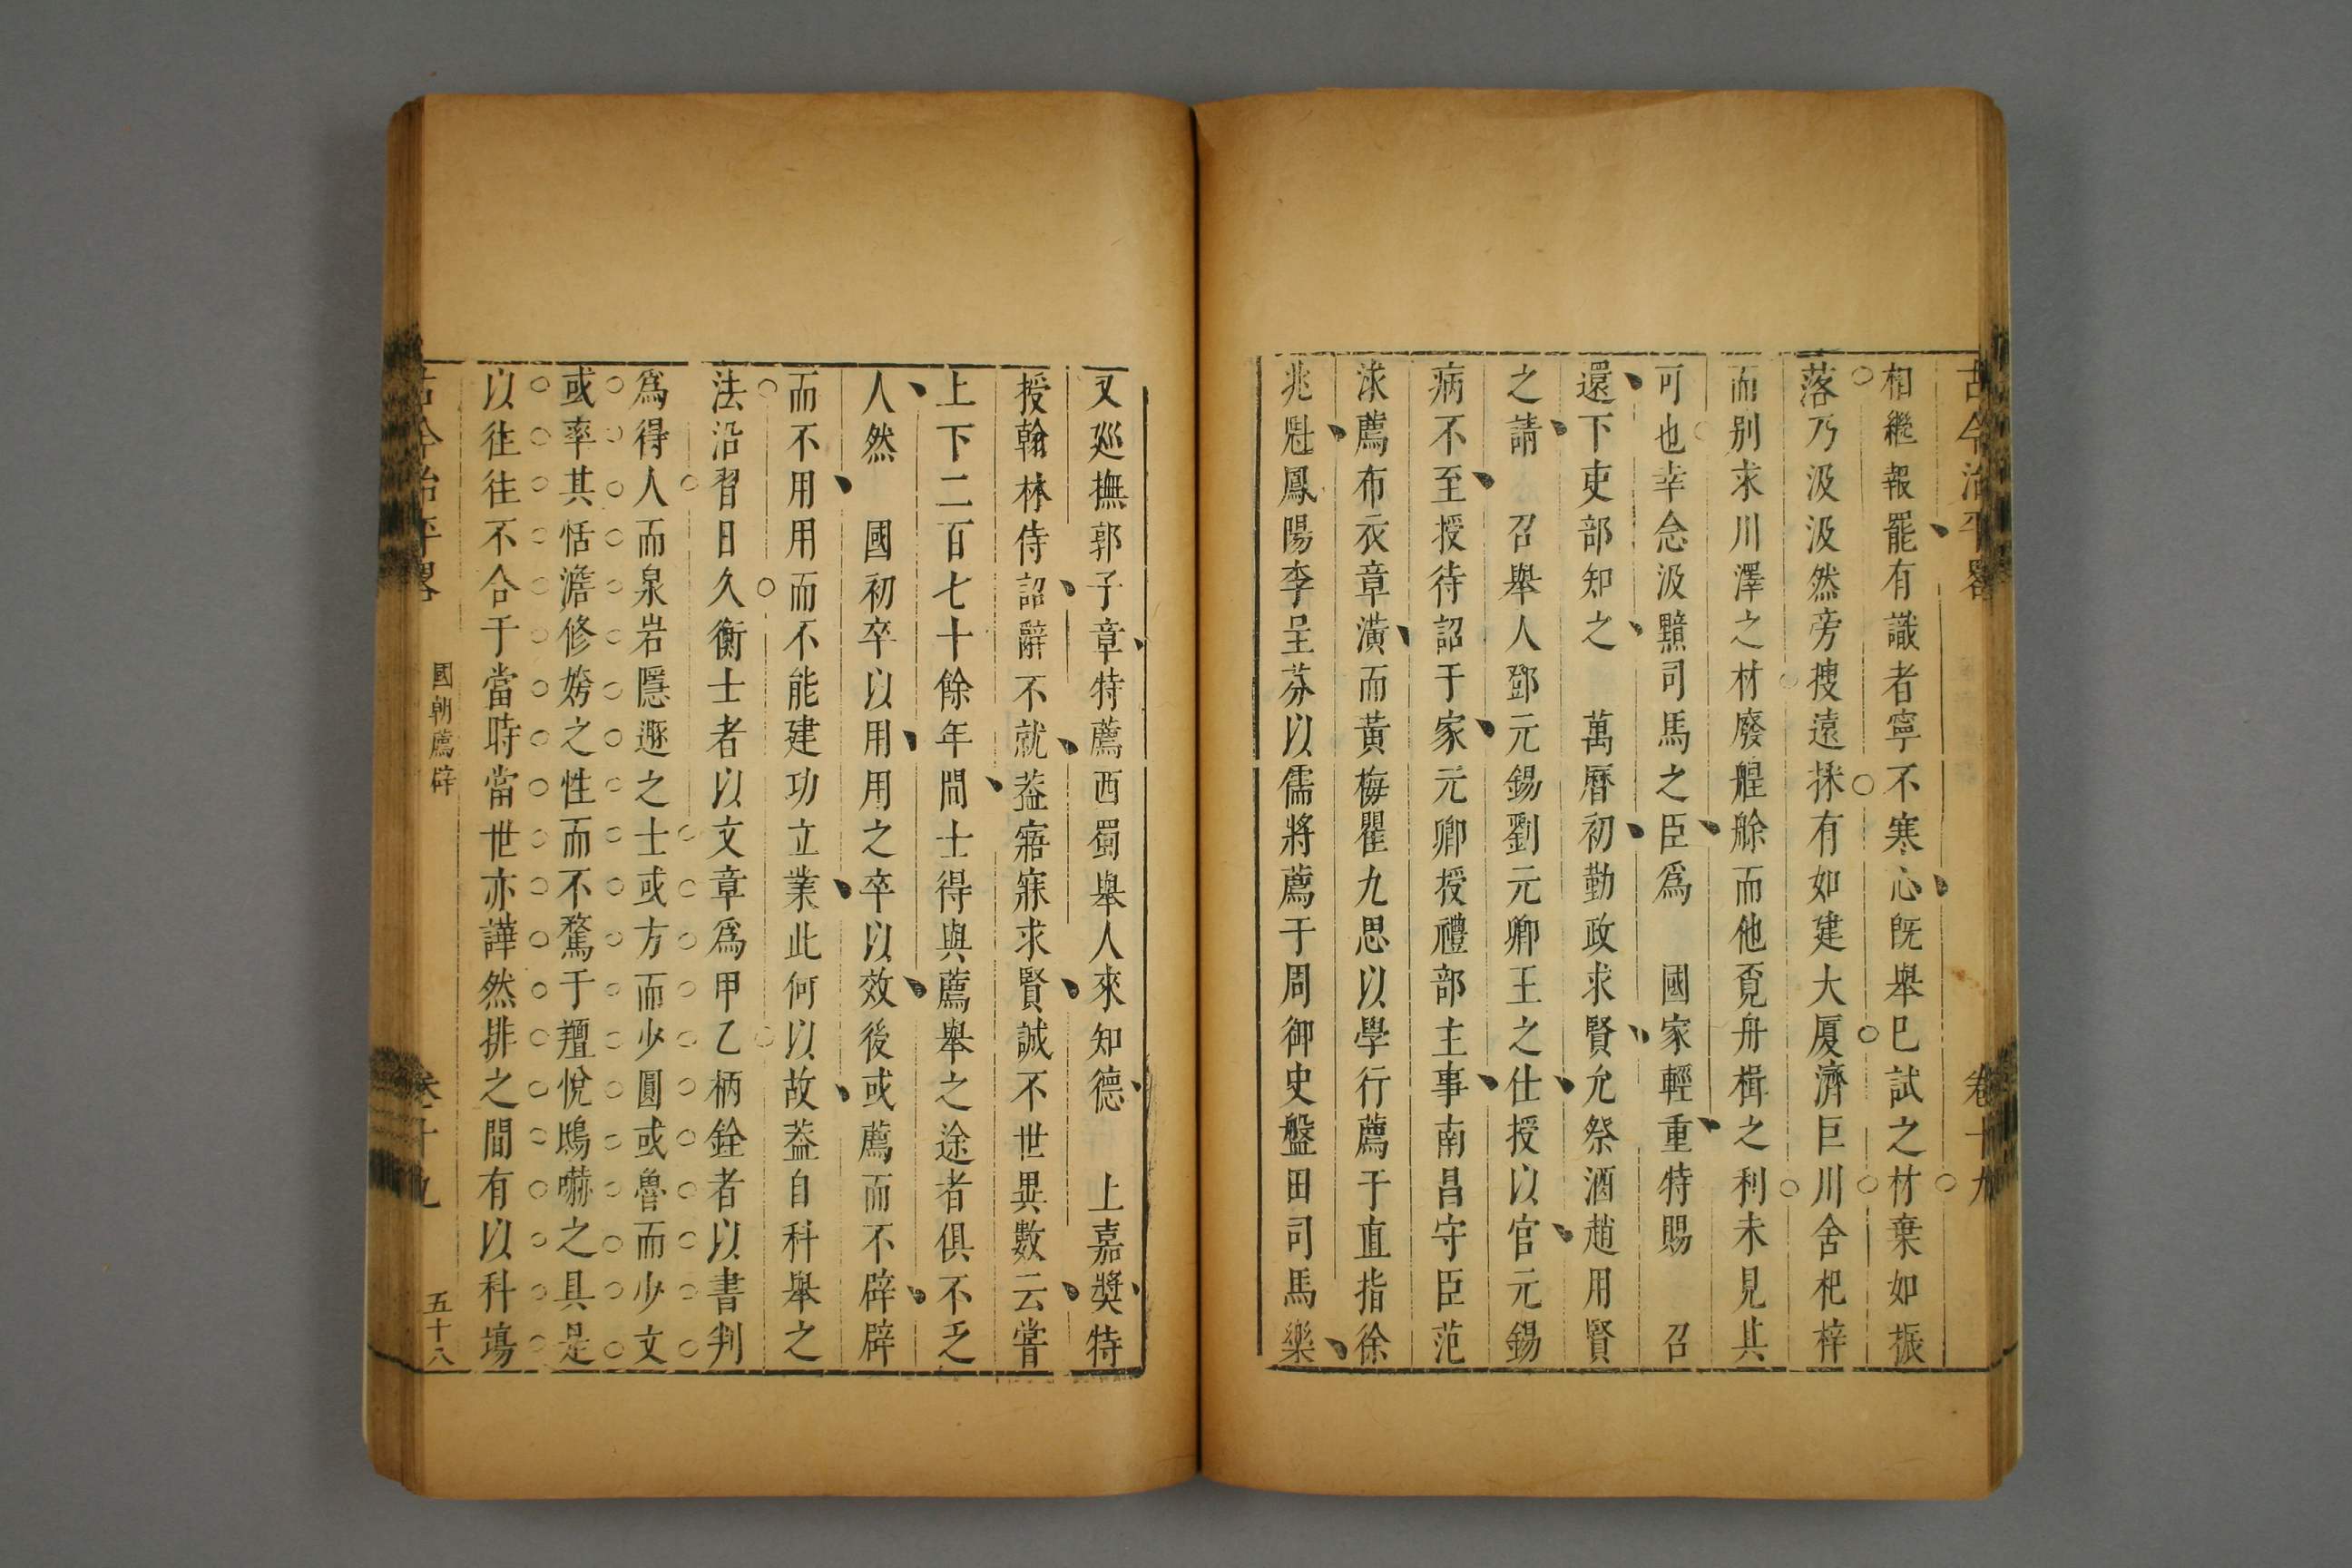 古今治平畧 卷十九
相繼報罷有識者寧不寒心旣舉巳試之材棄如振
落乃汲汲然旁搜遠採有如建大厦濟巨川舍杞梓
而别求川澤之材廢艎艅而他覔舟楫之利未見其
可也幸念汲黯司馬之臣爲　國家輕重特賜　召
還下吏部知之　萬曆初勤政求賢允祭酒趙用賢
之請　召舉人鄧元錫劉元卿王之仕授以官元錫
病不至授待詔于家元卿授禮部主事南昌守臣范
淶薦布衣章潢而黃梅瞿九思以學行薦于直指徐
兆魁鳳陽李呈芬以儒將薦于周御史盤田司馬樂
又廵撫郭子章特薦西蜀舉人來知德　上嘉奬特
授翰林侍詔辭不就葢寤寐求賢誠不世異數云甞
上下二百七十餘年間士得與薦舉之途者俱不乏
人然　國初卒以用用之卒以效後或薦而不辟辟
而不用用而不能建功立業此何以故葢自科舉之
法沿習日久衡士者以文章爲甲乙柄銓者以書判
爲得人而泉岩隱遯之士或方而少圓或魯而少文
或率其恬澹修姱之性而不騖于羶悅鴟嚇之具是
以往往不合于當時當世亦譁然排之間有以科塲
古今治平畧 國朝薦辟 卷十九 五十八